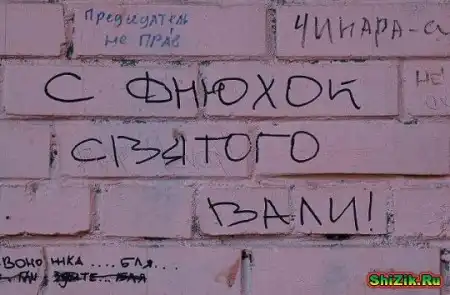 Предидатель
не ПРАВ
ЧИНАРА-а
С ДНЮХОЙ
СВЯТОГО
ВАЛИ!
НЕ
ВОНО ЖКА .... БЛЯ...
ShiZik.Ru